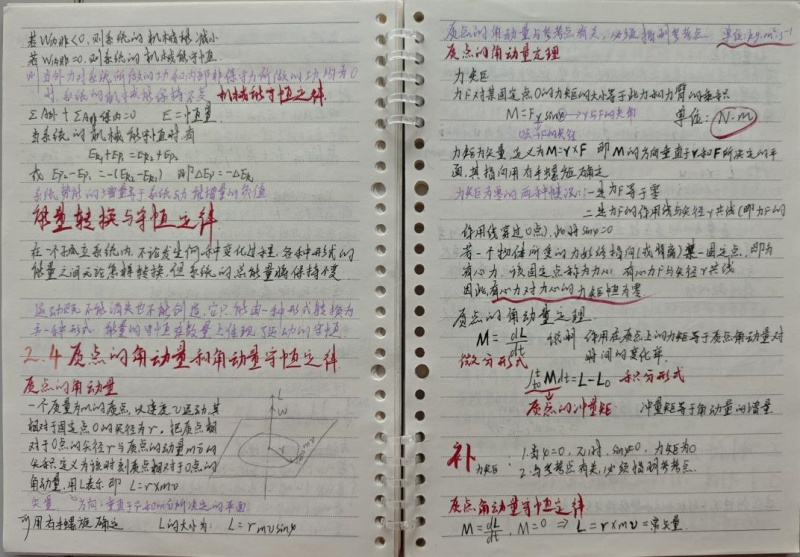 若W内非<0,则系统的机械能减小
若W内非=0,则系统的机械能守恒
则当外力对系统所做的功和内部非保守力所做的功,均为0
时,系统的机械能保持不变 机械能守恒定律
ΣA外+ΣA内非保守=0 E=恒量
当系统的机械能守恒时有
Ek1+Ep1=Ek2+Ep2
或 Ep2-Ep1=-(Ek2-Ek1) 即ΔEp=-ΔEk
系统势能的增量等于系统动能增量的负值
能量转换与守恒定律
在一个孤立系统内,不论发生何种变化过程,各种形式的
能量之间无论怎样转换,但系统的总能量将保持不变
运动既不能消失也不能创造,它只能由一种形式转换为
另一种形式,能量的守恒在数量上体现了运动的守恒
2.4 质点的角动量和角动量守恒定律
质点的角动量
一个质量为m的质点,以速度v运动,其
相对于固定点O的矢径为r,把质点相
对于O点的矢径r与质点的动量mv的
矢积定义为该时刻质点相对于O点的
角动量,用L表示 即 L=r×mv
矢量 方向:垂直于r和mv所决定的平面
可用右手螺旋确定 L的大小为: L=rmvsinφ
质点的角动量与参考点有关,必须指明参考点 单位:kg·m²·s⁻¹
质点的角动量定理
力矩
力F对某固定点O的力矩的大小等于此力和力臂的乘积
M=Frsinφ→r与F的夹角 单位:N·m
力矩为矢量,定义为M=r×F 即M的方向垂直于r和F所决定的平
面,其指向用右手螺旋确定
力矩为零的两种情况:一是力F等于零
二是力F的作用线与矢径r共线(即力F的
作用线穿过O点),此时sinφ=0
若一个物体所受的力始终指向(或背离)某一固定点,即为
有心力,该固定点称为力心,有心力F与矢径r共线
因此,有心力对力心的力矩恒为零
质点的角动量定理
M=dL/dt 说明 作用在质点上的力矩等于质点角动量对
时间的变化率
微分形式
∫t0 t Mdt=L-L0 积分形式
质点的冲量矩 冲量矩等于角动量的增量
补 力矩为 1.当φ=0,π时,sinφ=0,力矩为0
2.与参考点有关,必须指明参考点
质点角动量守恒定律
M=dL/dt,M=0 ⇒ L=r×mv=常矢量